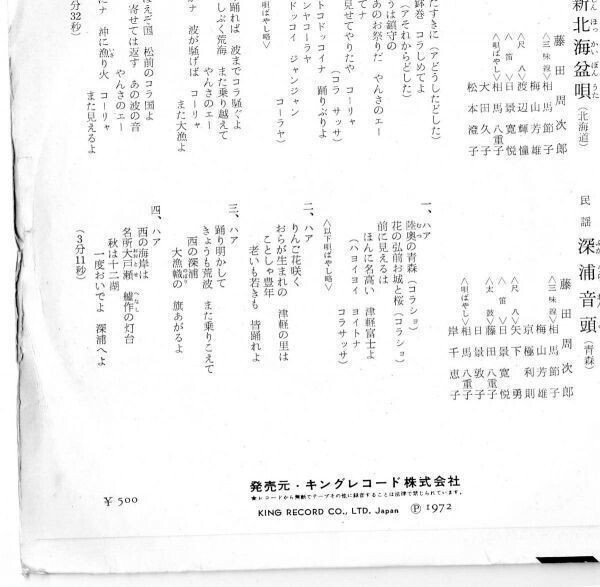 新北海盆唄
しんほっかいぼんうた
(北海道)
藤田周次郎
<三味線>相馬節子
梅山芳雄
<尺八>渡辺輝憧
<笛>日景寛悦
<唄ばやし>相馬八重子
大田久子
松本澄子
たすきに (アどうしたどした)
鉢巻 コラしめてよ
(アそれからどした)
うは鎮守の
あのお祭りだ やんさのエー
てナ
見せてやりたや コーリャ
(コラ サッサ)
トコドッコイナ 踊りぶりよ
ンヤコラーヤ
ドッコイ ジャンジャン
コーラヤ)
唄ばやし略>
踊れば 波までコラ騒ぐよ
しぶく荒海 また乗り越えて
やんさのエー
ナ 波が騒げば コーリャ
また大漁よ
はえぞ国 松前のコラ国よ
寄せては返す あの波の音
やんさのエー
ナ 沖に漁り火 コーリャ
また見えるよ
分32秒)
民謡 深浦音頭
(青森)
藤田周次郎
<三味線>相馬節子
梅山芳雄
京極利則
<尺八>矢下勇
<笛>日景寛悦
<太鼓>藤田八重子
日景敦子
<唄ばやし>相馬八重子
岸千恵子
一、ハア
陸奥の青森 (コラショ)
むつ
花の弘前お城と桜 (コラショ)
前に見えるは
ほんに名高い 津軽富士よ
(ハヨイヨイ ヨイトナ
コラサッサ)
<以下唄ばやし略>
二、ハア
りんご花咲く
おらが生まれの 津軽の里は
ことしゃ豊年
老いも若きも 皆踊れよ
三、ハア
踊り明かして
きょうも荒波 また乗りこえて
西の深浦
大漁幟の 旗あがるよ
のぼり
四、ハア
西の海岸は
名所大戸瀬 艫作の灯台
おおどせ へなし
秋は十二湖
一度おいでよ 深浦へよ
(3分11秒)
発売元・キングレコード株式会社
★レコードから無断でテープその他に録音することは法律で禁じられています。
KING RECORD CO., LTD. Japan Ⓟ1972
¥500